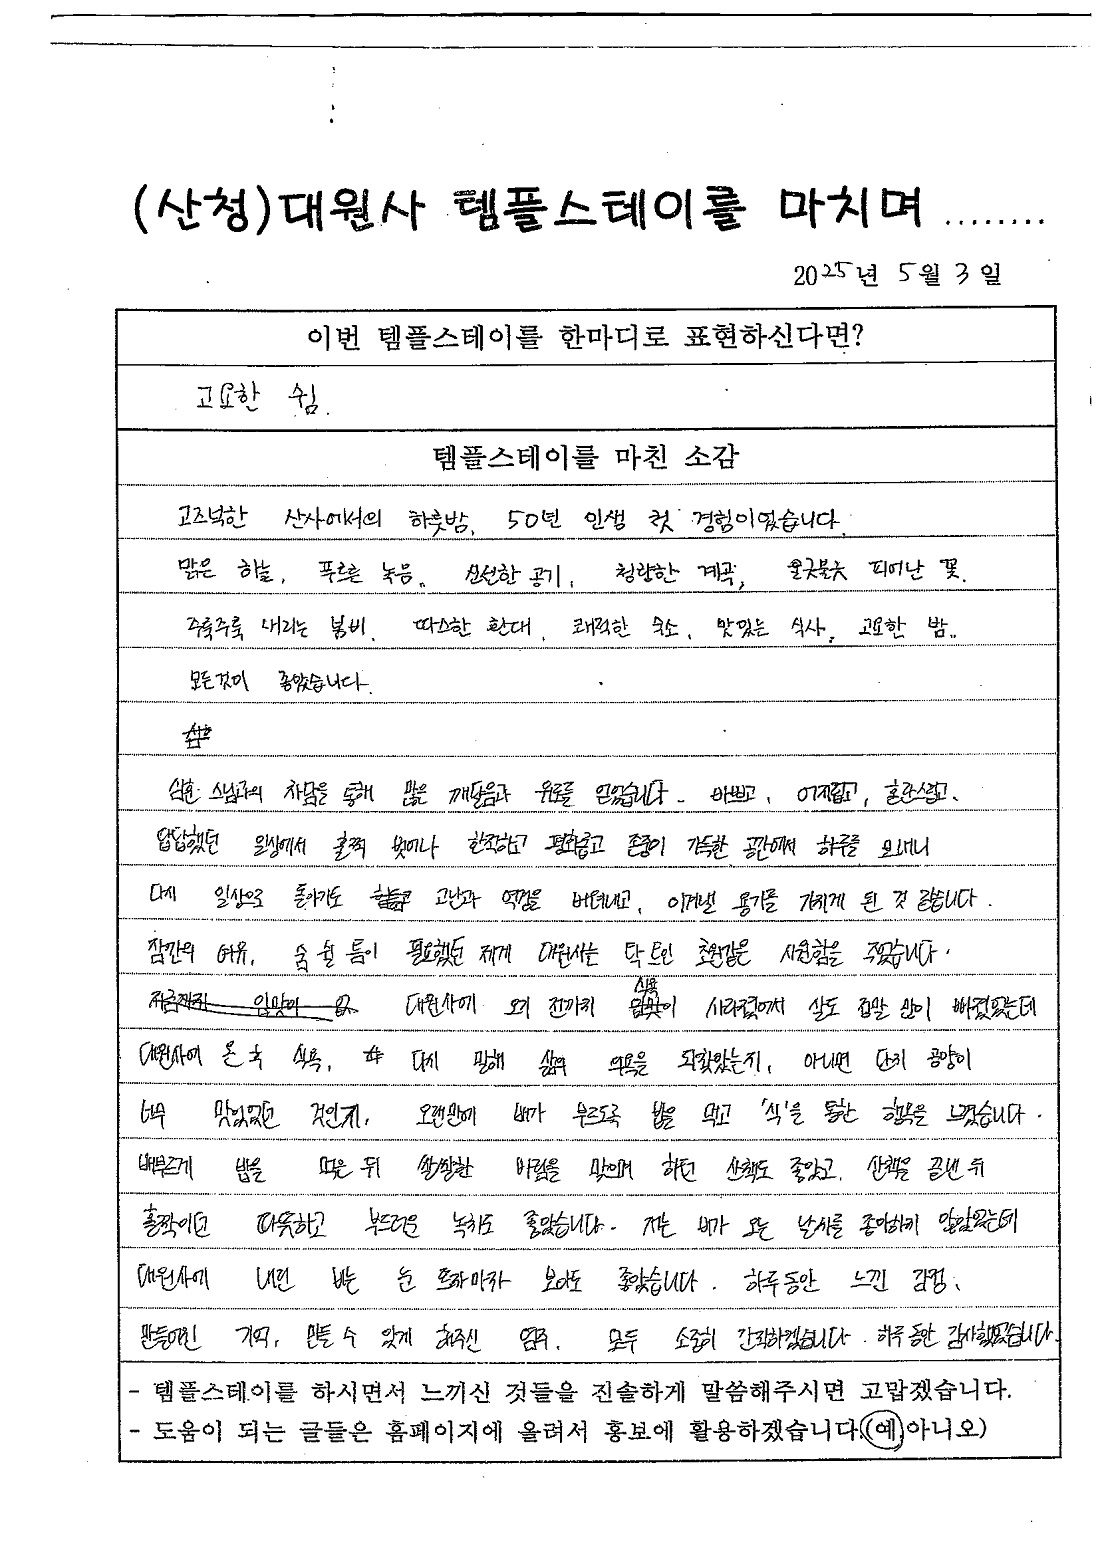 (산청)대원사 템플스테이를 마치며 ........
2025년 5월 3일
이번 템플스테이를 한마디로 표현하신다면?
고요한 쉼.
템플스테이를 마친 소감
고즈넉한 산사에서의 하룻밤, 50년 인생 첫 경험이었습니다.
맑은 하늘, 푸르른 녹음, 신선한 공기, 청량한 계곡, 울긋불긋 피어난 꽃,
주룩주룩 내리는 봄비, 따스한 환대, 쾌적한 숙소, 맛있는 식사, 고요한 밤..
모든것이 좋았습니다.
스님과의 차담을 통해 많은 깨달음과 위로를 얻었습니다. 바쁘고, 어지럽고, 혼란스럽고,
답답했던 일상에서 훌쩍 벗어나 한적하고 평화롭고 존중이 가득한 공간에서 하루를 보내니
다시 일상으로 돌아가도 힘들고 고난과 역경을 버텨내고, 이겨낼 용기를 가지게 된 것 같습니다.
잠깐의 여유, 숨 쉴 틈이 필요했던 제게 대원사는 탁 트인 초원같은 시원함을 주었습니다.
대원사에 오기 전까지 식욕이 사라졌어서 살도 정말 많이 빠졌었는데
대원사에 온 후 식욕, 다시 말해 삶의 의욕을 되찾았는지, 아니면 단지 공양이
너무 맛있었던 것인지, 오랜만에 배가 부르도록 밥을 먹고 '식'을 통한 행복을 느꼈습니다.
배부르게 밥을 먹은 뒤 쌀쌀한 바람을 맞으며 하던 산책도 좋았고, 산책을 끝낸 뒤
홀짝이던 따뜻하고 부드러운 녹차도 좋았습니다. 저는 비가 오는 날씨를 좋아하지 않았었는데
대원사에 내린 비는 눈 조차 보아도 좋았습니다. 하루동안 느낀 감정,
만들어진 기억, 만들 수 있게 해주신 인연, 모두 소중히 간직하겠습니다. 하루 동안 감사했었습니다.
- 템플스테이를 하시면서 느끼신 것들을 진솔하게 말씀해주시면 고맙겠습니다.
- 도움이 되는 글들은 홈페이지에 올려서 홍보에 활용하겠습니다.(예,아니오)